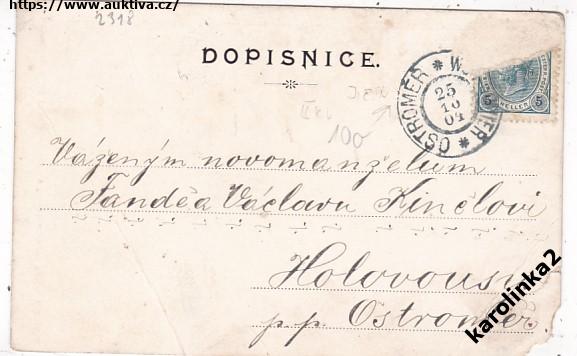 https://www.auktiva.cz/
2318
DOPISNICE.
OSTROMĚŘ * WOSTROMER *
25
10
04
5 HELLER 5
100
Váženým novomanželům
Fandě a Václavu Kinčlovi
Holovousy
p.p. Ostroměř.
karolinka2